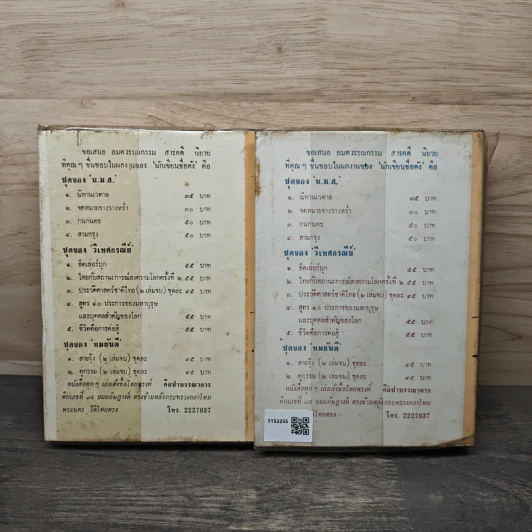 ขอเสนอ อมตวรรณกรรม สารคดี นิยาย
ที่คุณๆ ชื่นชอบในผลงานของ 'นักเขียนชื่อดัง' คือ
ชุดของ 'น.ม.ส.'
๑. นิทานเวตาล ๓๕ บาท
๒. จดหมายจางวางหร่ำ ๓๐ บาท
๓. กนกนคร ๕๐ บาท
๔. สามกรุง ๕๐ บาท
ชุดของ 'วิเทศกรณีย์'
๑. ฮิตเล่อร์บุก ๕๕ บาท
๒. ไทยกับสถานะการณ์สงครามโลกครั้งที่ ๒ ๕๕ บาท
๓. ประวัติศาสตร์ชาติไทย (๒ เล่มจบ) ชุดละ ๘๕ บาท
๔. สูตร ๔๐ ประการของมหาบุรุษ
และบุคคลสำคัญของโลก ๕๕ บาท
๕. ชีวิตคือการต่อสู้ ๕๕ บาท
ชุดของ 'ทมยันตี'
๑. สายรุ้ง (๒ เล่มจบ) ชุดละ ๔๕ บาท
๒. คู่กรรม (๒ เล่มจบ) ชุดละ ๔๕ บาท
หนังสือทุกๆ เล่มสั่งซื้อโดยตรงที่ ศิลปาบรรณาคาร
ตึกเลขที่ ๗๔ ถนนอัษฎางค์ ตรงข้ามหลังกระทรวงกลาโหม
พระนคร ได้โดยตรง โทร. 2227037
ขอเสนอ อมตวรรณกรรม สารคดี นิยาย
ที่คุณๆ ชื่นชอบในผลงานของ 'นักเขียนชื่อดัง' คือ
ชุดของ 'น.ม.ส.'
๑. นิทานเวตาล ๓๕ บาท
๒. จดหมายจางวางหร่ำ ๓๐ บาท
๓. กนกนคร ๕๐ บาท
๔. สามกรุง ๕๐ บาท
ชุดของ 'วิเทศกรณีย์'
๑. ฮิตเล่อร์บุก ๕๕ บาท
๒. ไทยกับสถานะการณ์สงครามโลกครั้งที่ ๒ ๕๕ บาท
๓. ประวัติศาสตร์ชาติไทย (๒ เล่มจบ) ชุดละ ๘๕ บาท
๔. สูตร ๔๐ ประการของมหาบุรุษ
และบุคคลสำคัญของโลก ๕๕ บาท
๕. ชีวิตคือการต่อสู้ ๕๕ บาท
ชุดของ 'ทมยันตี'
๑. สายรุ้ง (๒ เล่มจบ) ชุดละ ๔๕ บาท
๒. คู่กรรม (๒ เล่มจบ) ชุดละ ๔๕ บาท
หนังสือทุกๆ เล่มสั่งซื้อโดยตรงที่ ศิลปาบรรณาคาร
ตึกเลขที่ ๗๔ ถนนอัษฎางค์ ตรงข้ามหลังกระทรวงกลาโหม
โดยตรง โทร. 2227037
1152255